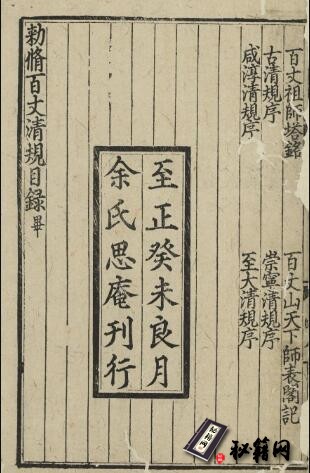 百丈祖師塔銘　百丈山天下師表閣記
古清規序　崇寧清規序
咸淳清規序　至大清規序
至正癸未良月
余氏思庵刊行
勑脩百丈清規目録畢
秘籍网
秘籍网